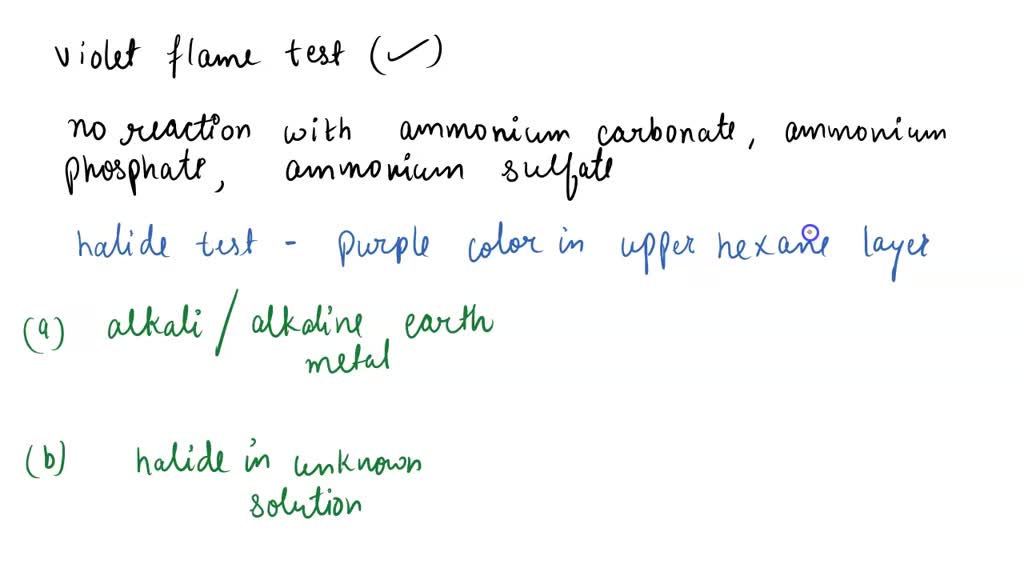 violet flame test (✓)
no reaction with ammonium carbonate, ammonium
phosphate, ammonium sulfate
halide test - purple color in upper hexane layer
(a) alkali / alkaline earth
metal
(b) halide in unknown
solution